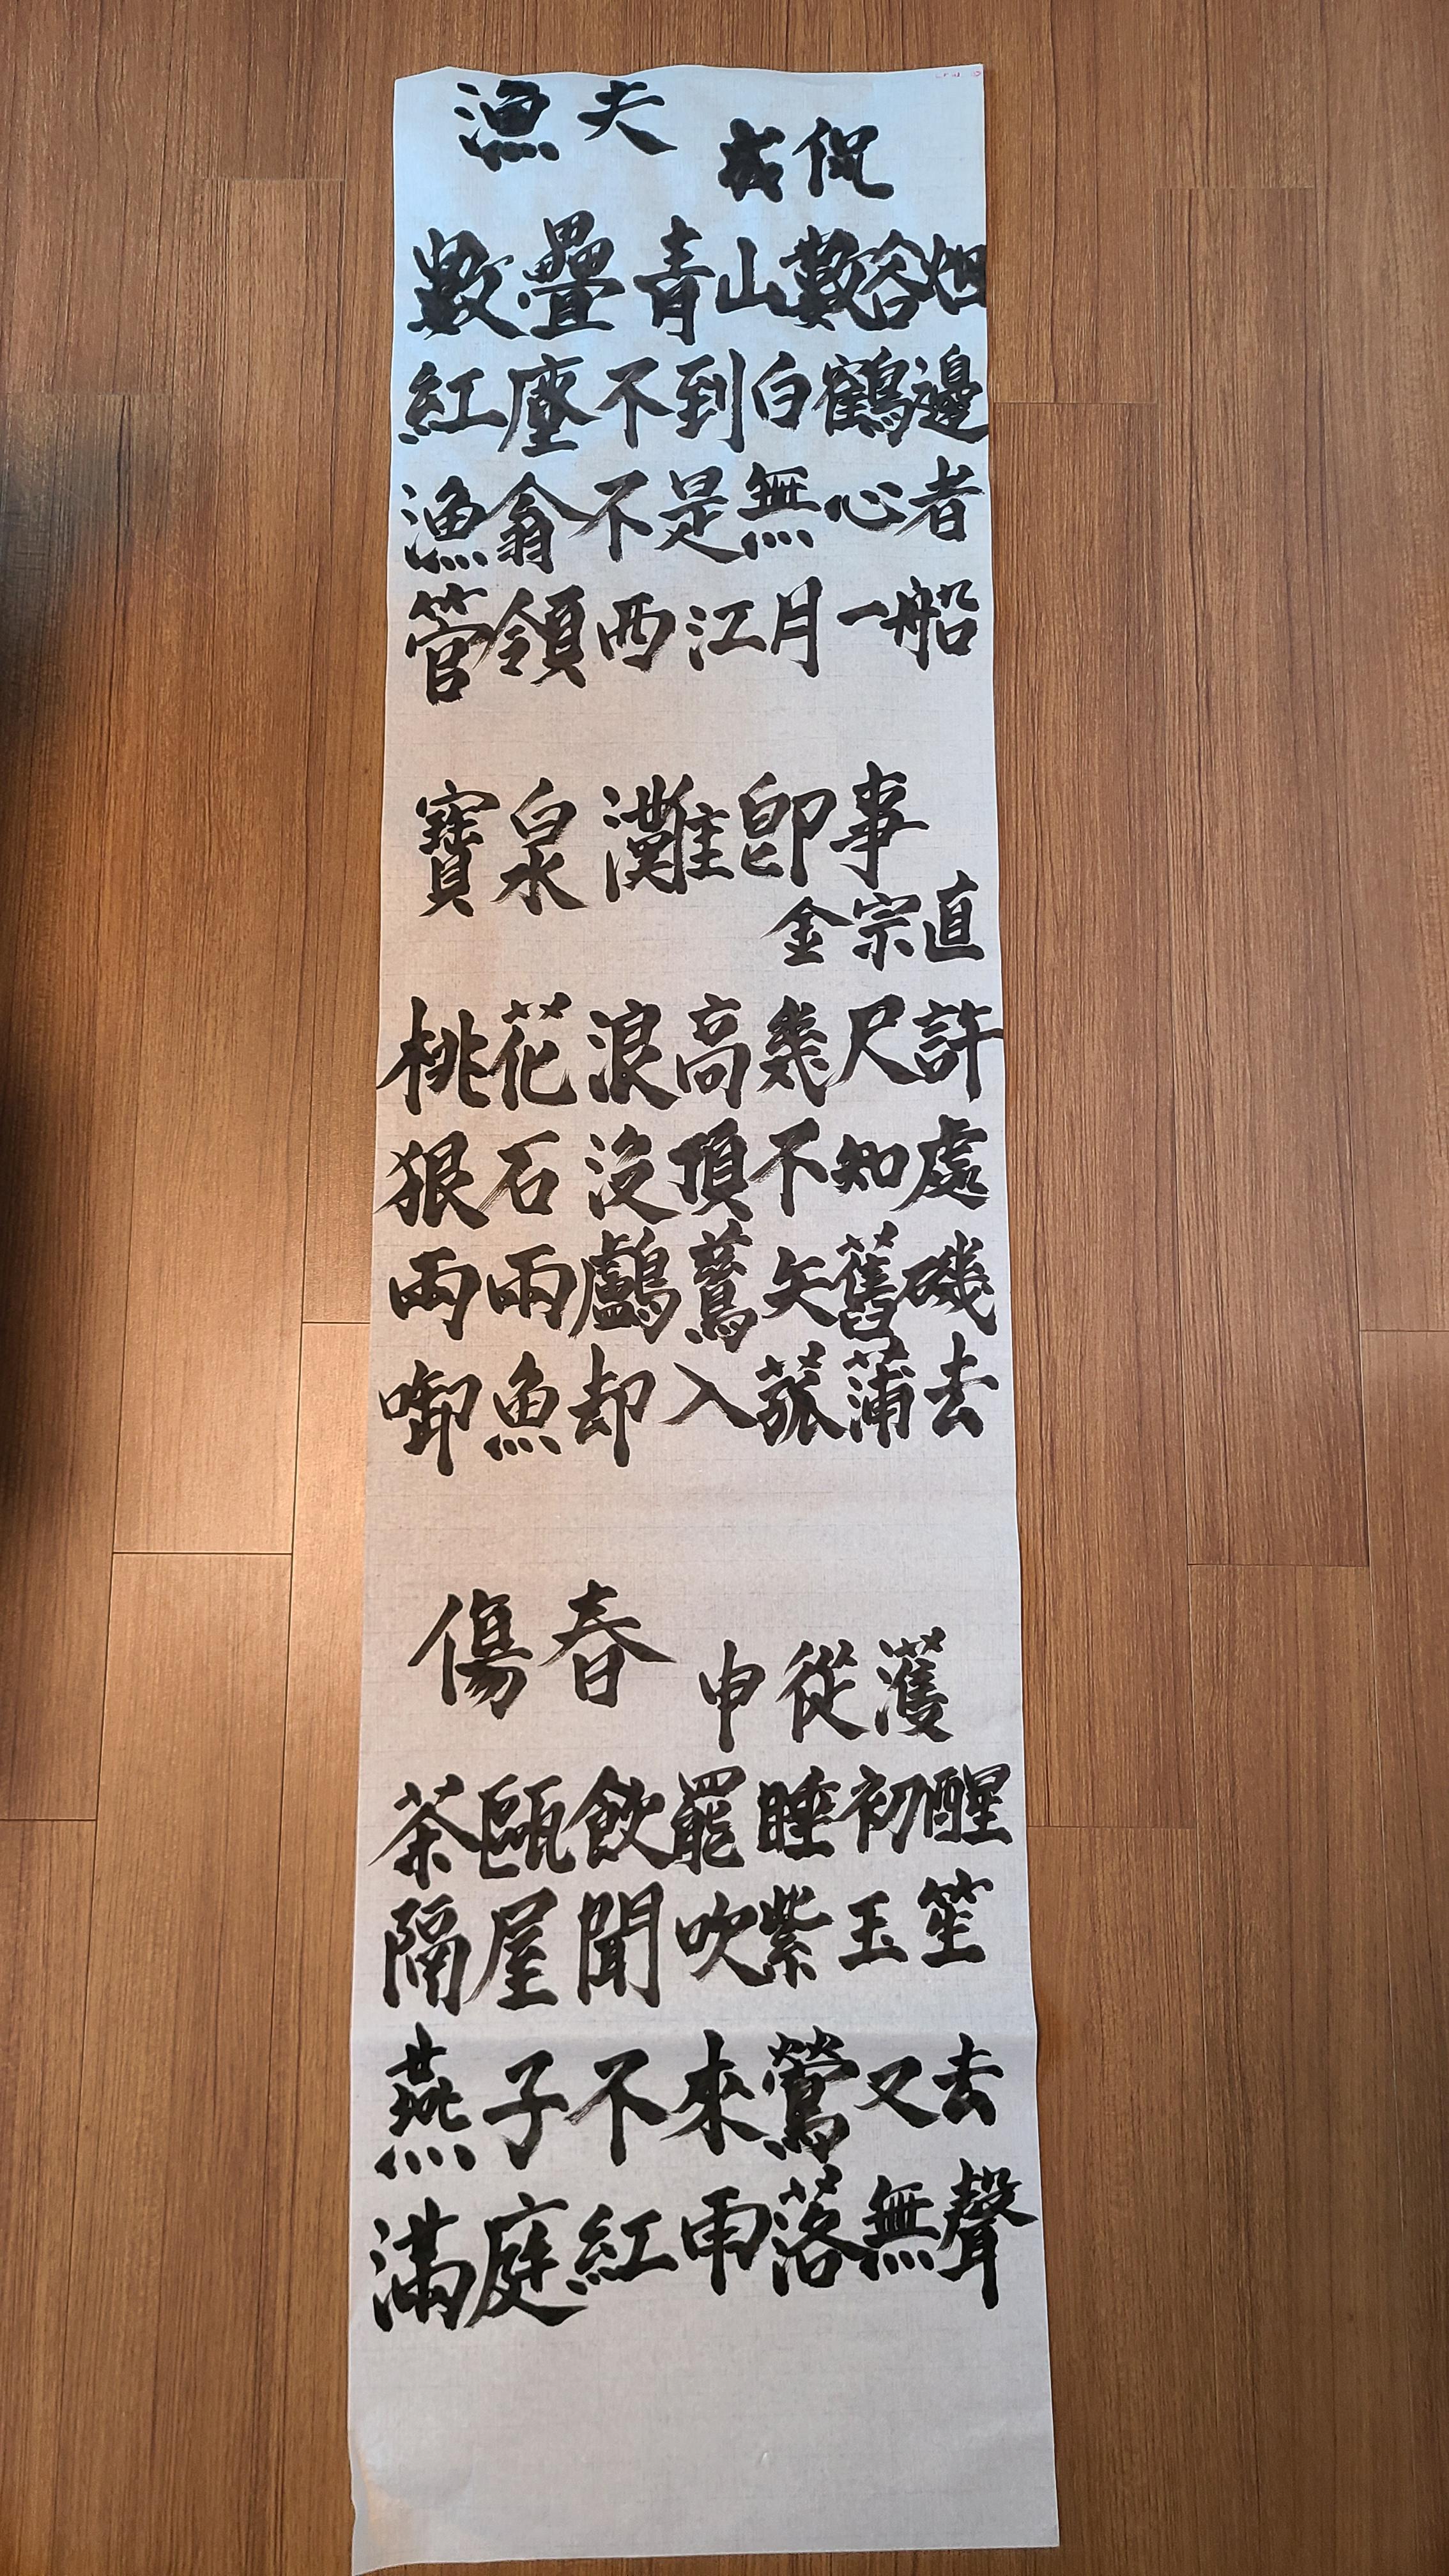 漁夫
成侃
數疊青山數谷烟
紅塵不到白鶴邊
漁翁不是無心者
管領西江月一船
寶泉灘卽事
金宗直
桃花浪高幾尺許
狠石沒頂不知處
兩兩鸕鶿失舊磯
啣魚却入菰蒲去
傷春
申從濩
茶甌飮罷睡初醒
隔屋聞吹紫玉笙
燕子不來鶯又去
滿庭紅雨落無聲